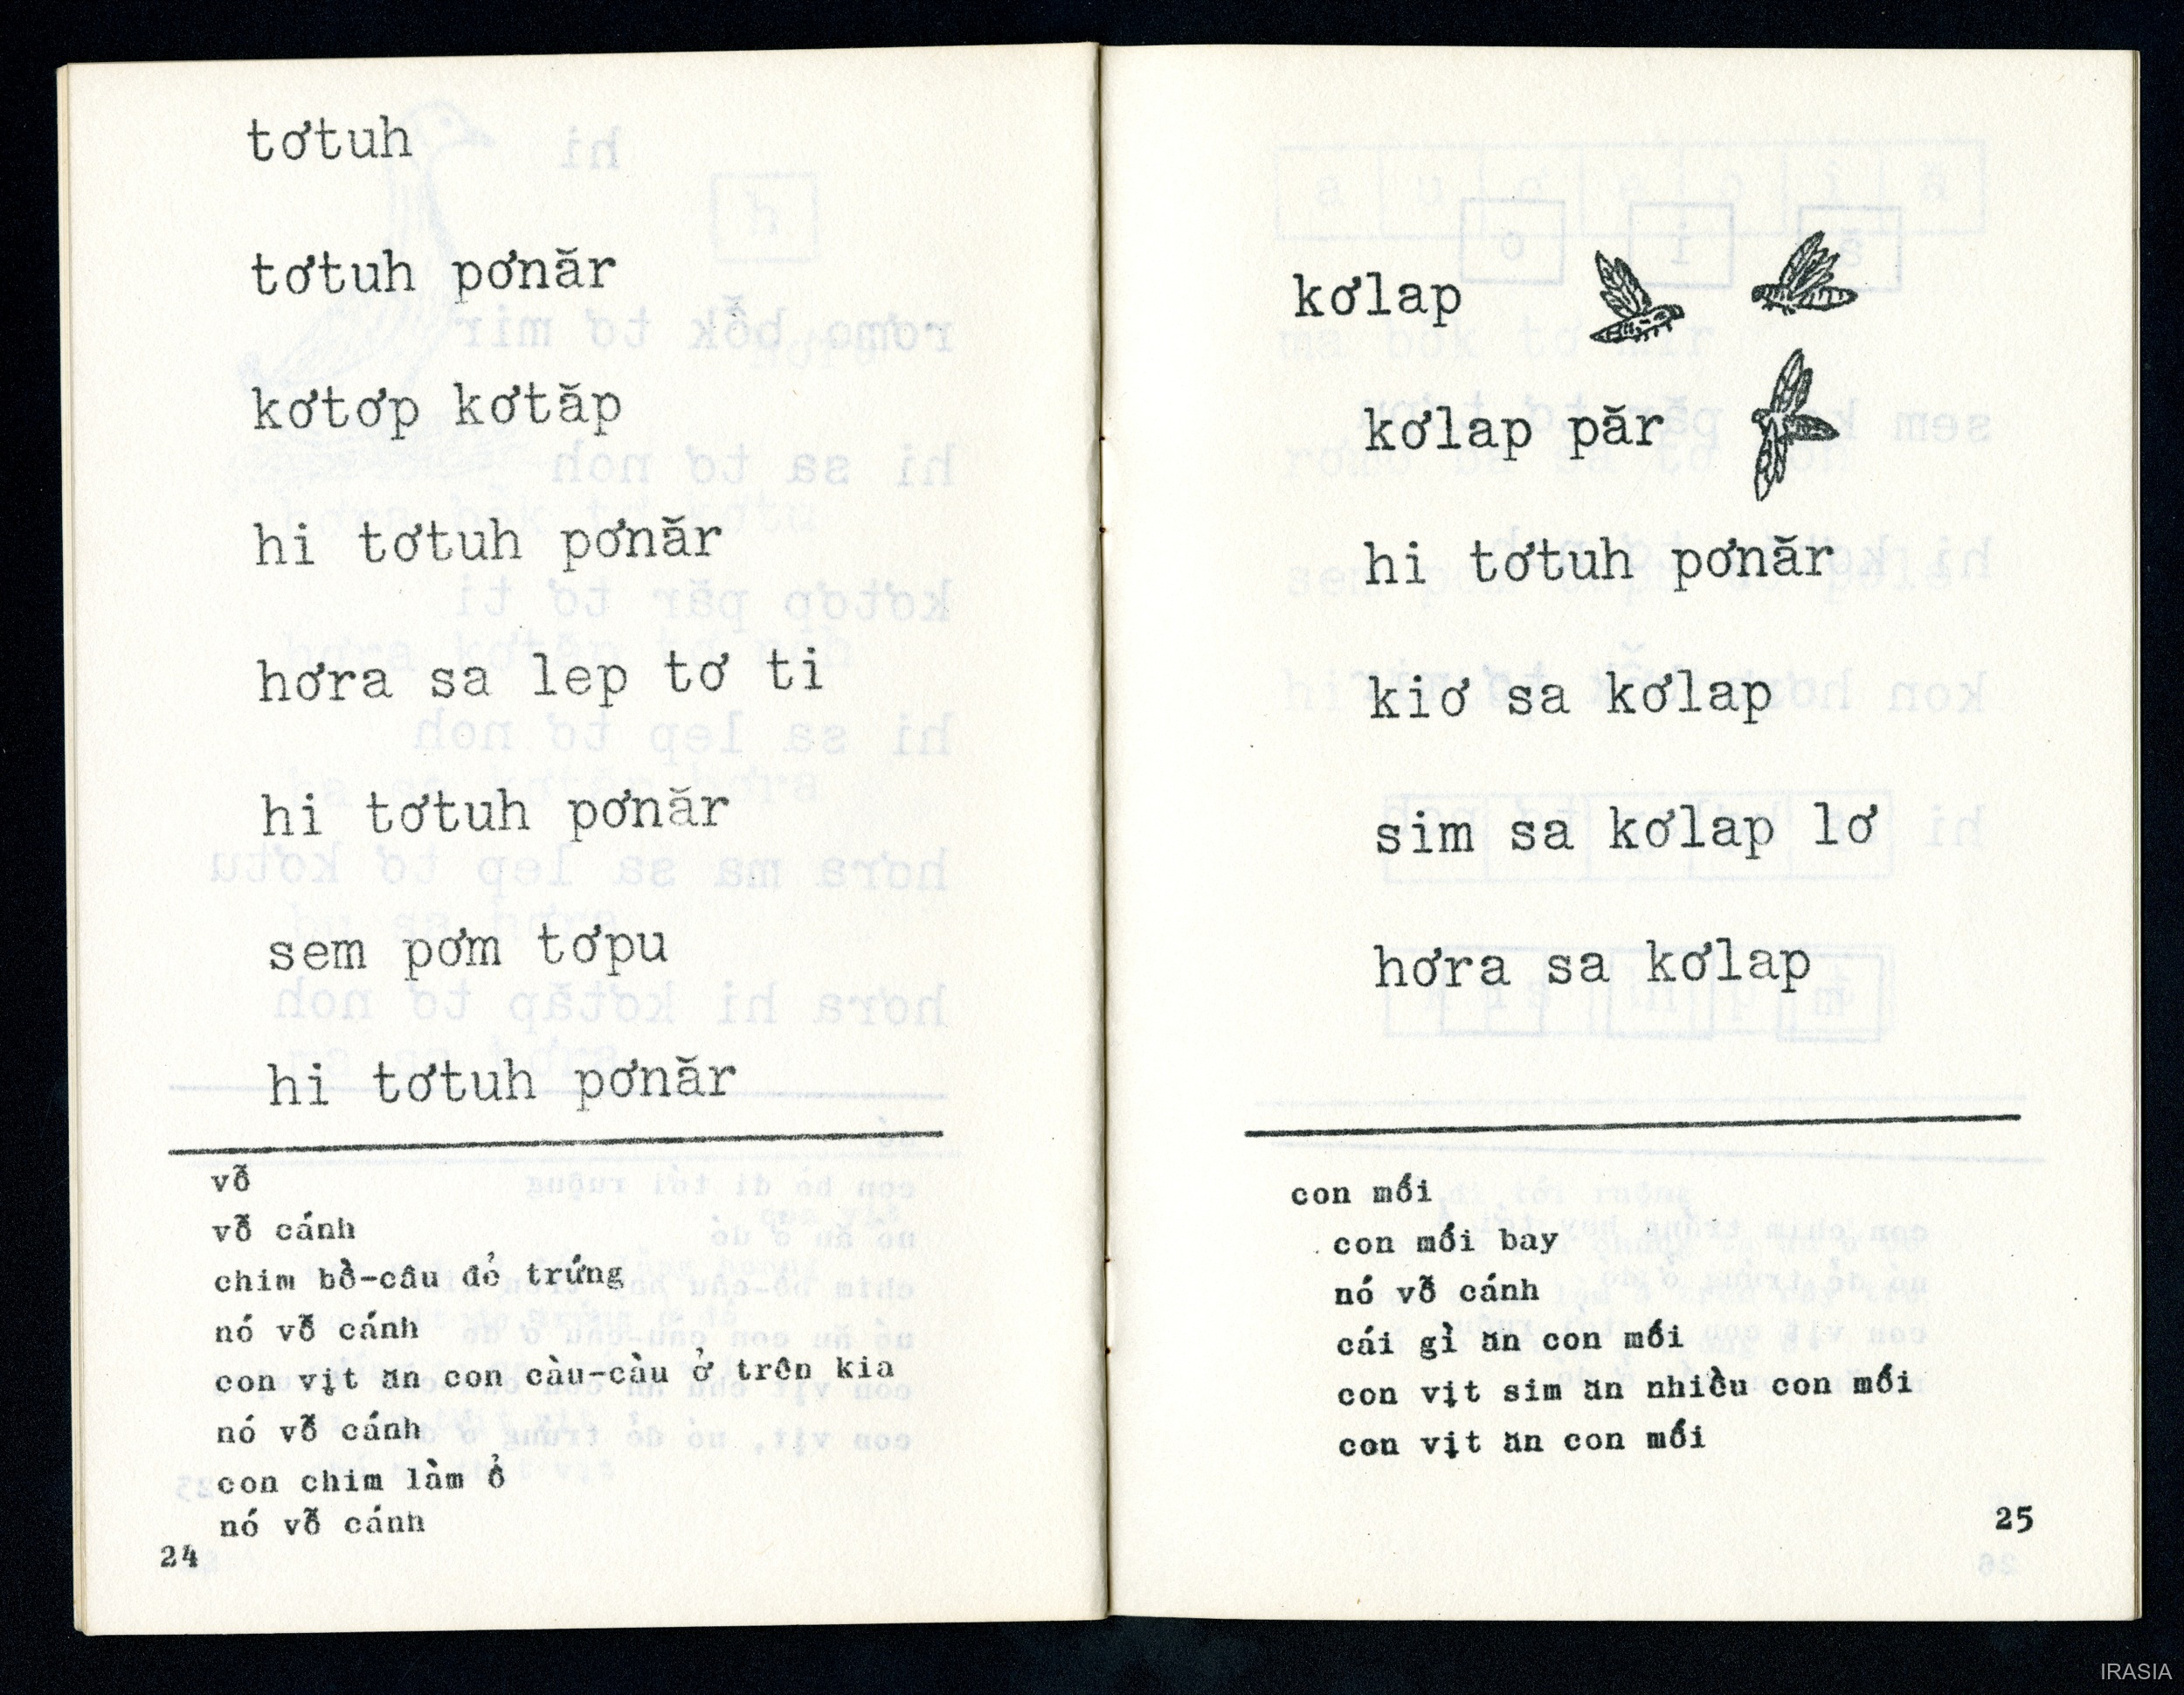 tơtuh
tơtuh pơnăr
kơtơp kơtăp
hi tơtuh pơnăr
hơra sa lep tơ ti
hi tơtuh pơnăr
sem pơm tơpu
hi tơtuh pơnăr
vỗ
vỗ cánh
chim bồ-câu đẻ trứng
nó vỗ cánh
con vịt ăn con càu-càu ở trên kia
nó vỗ cánh
con chim làm ổ
nó vỗ cánh
24
kơlap
kơlap păr
hi tơtuh pơnăr
kiơ sa kơlap
sim sa kơlap lơ
hơra sa kơlap
con mối
con mối bay
nó vỗ cánh
cái gì ăn con mối
con vịt sim ăn nhiều con mối
con vịt ăn con mối
25
IRASIA